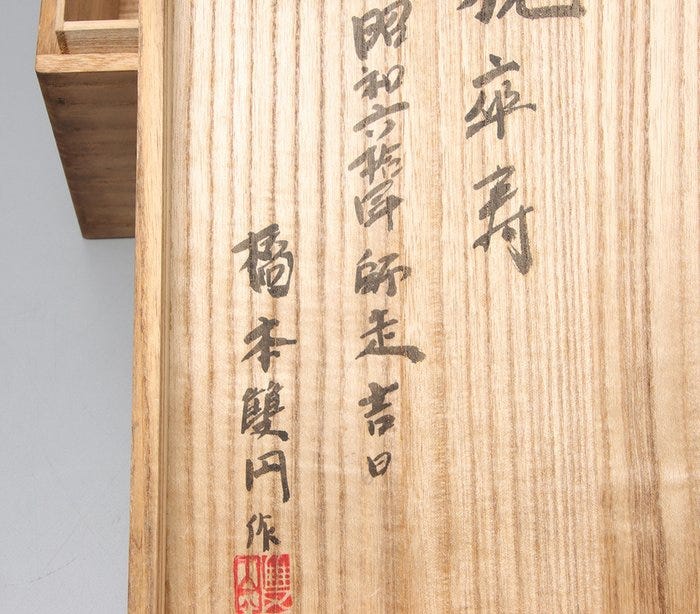 卒寿
昭和六拾年 師走吉日
橋本雙円作